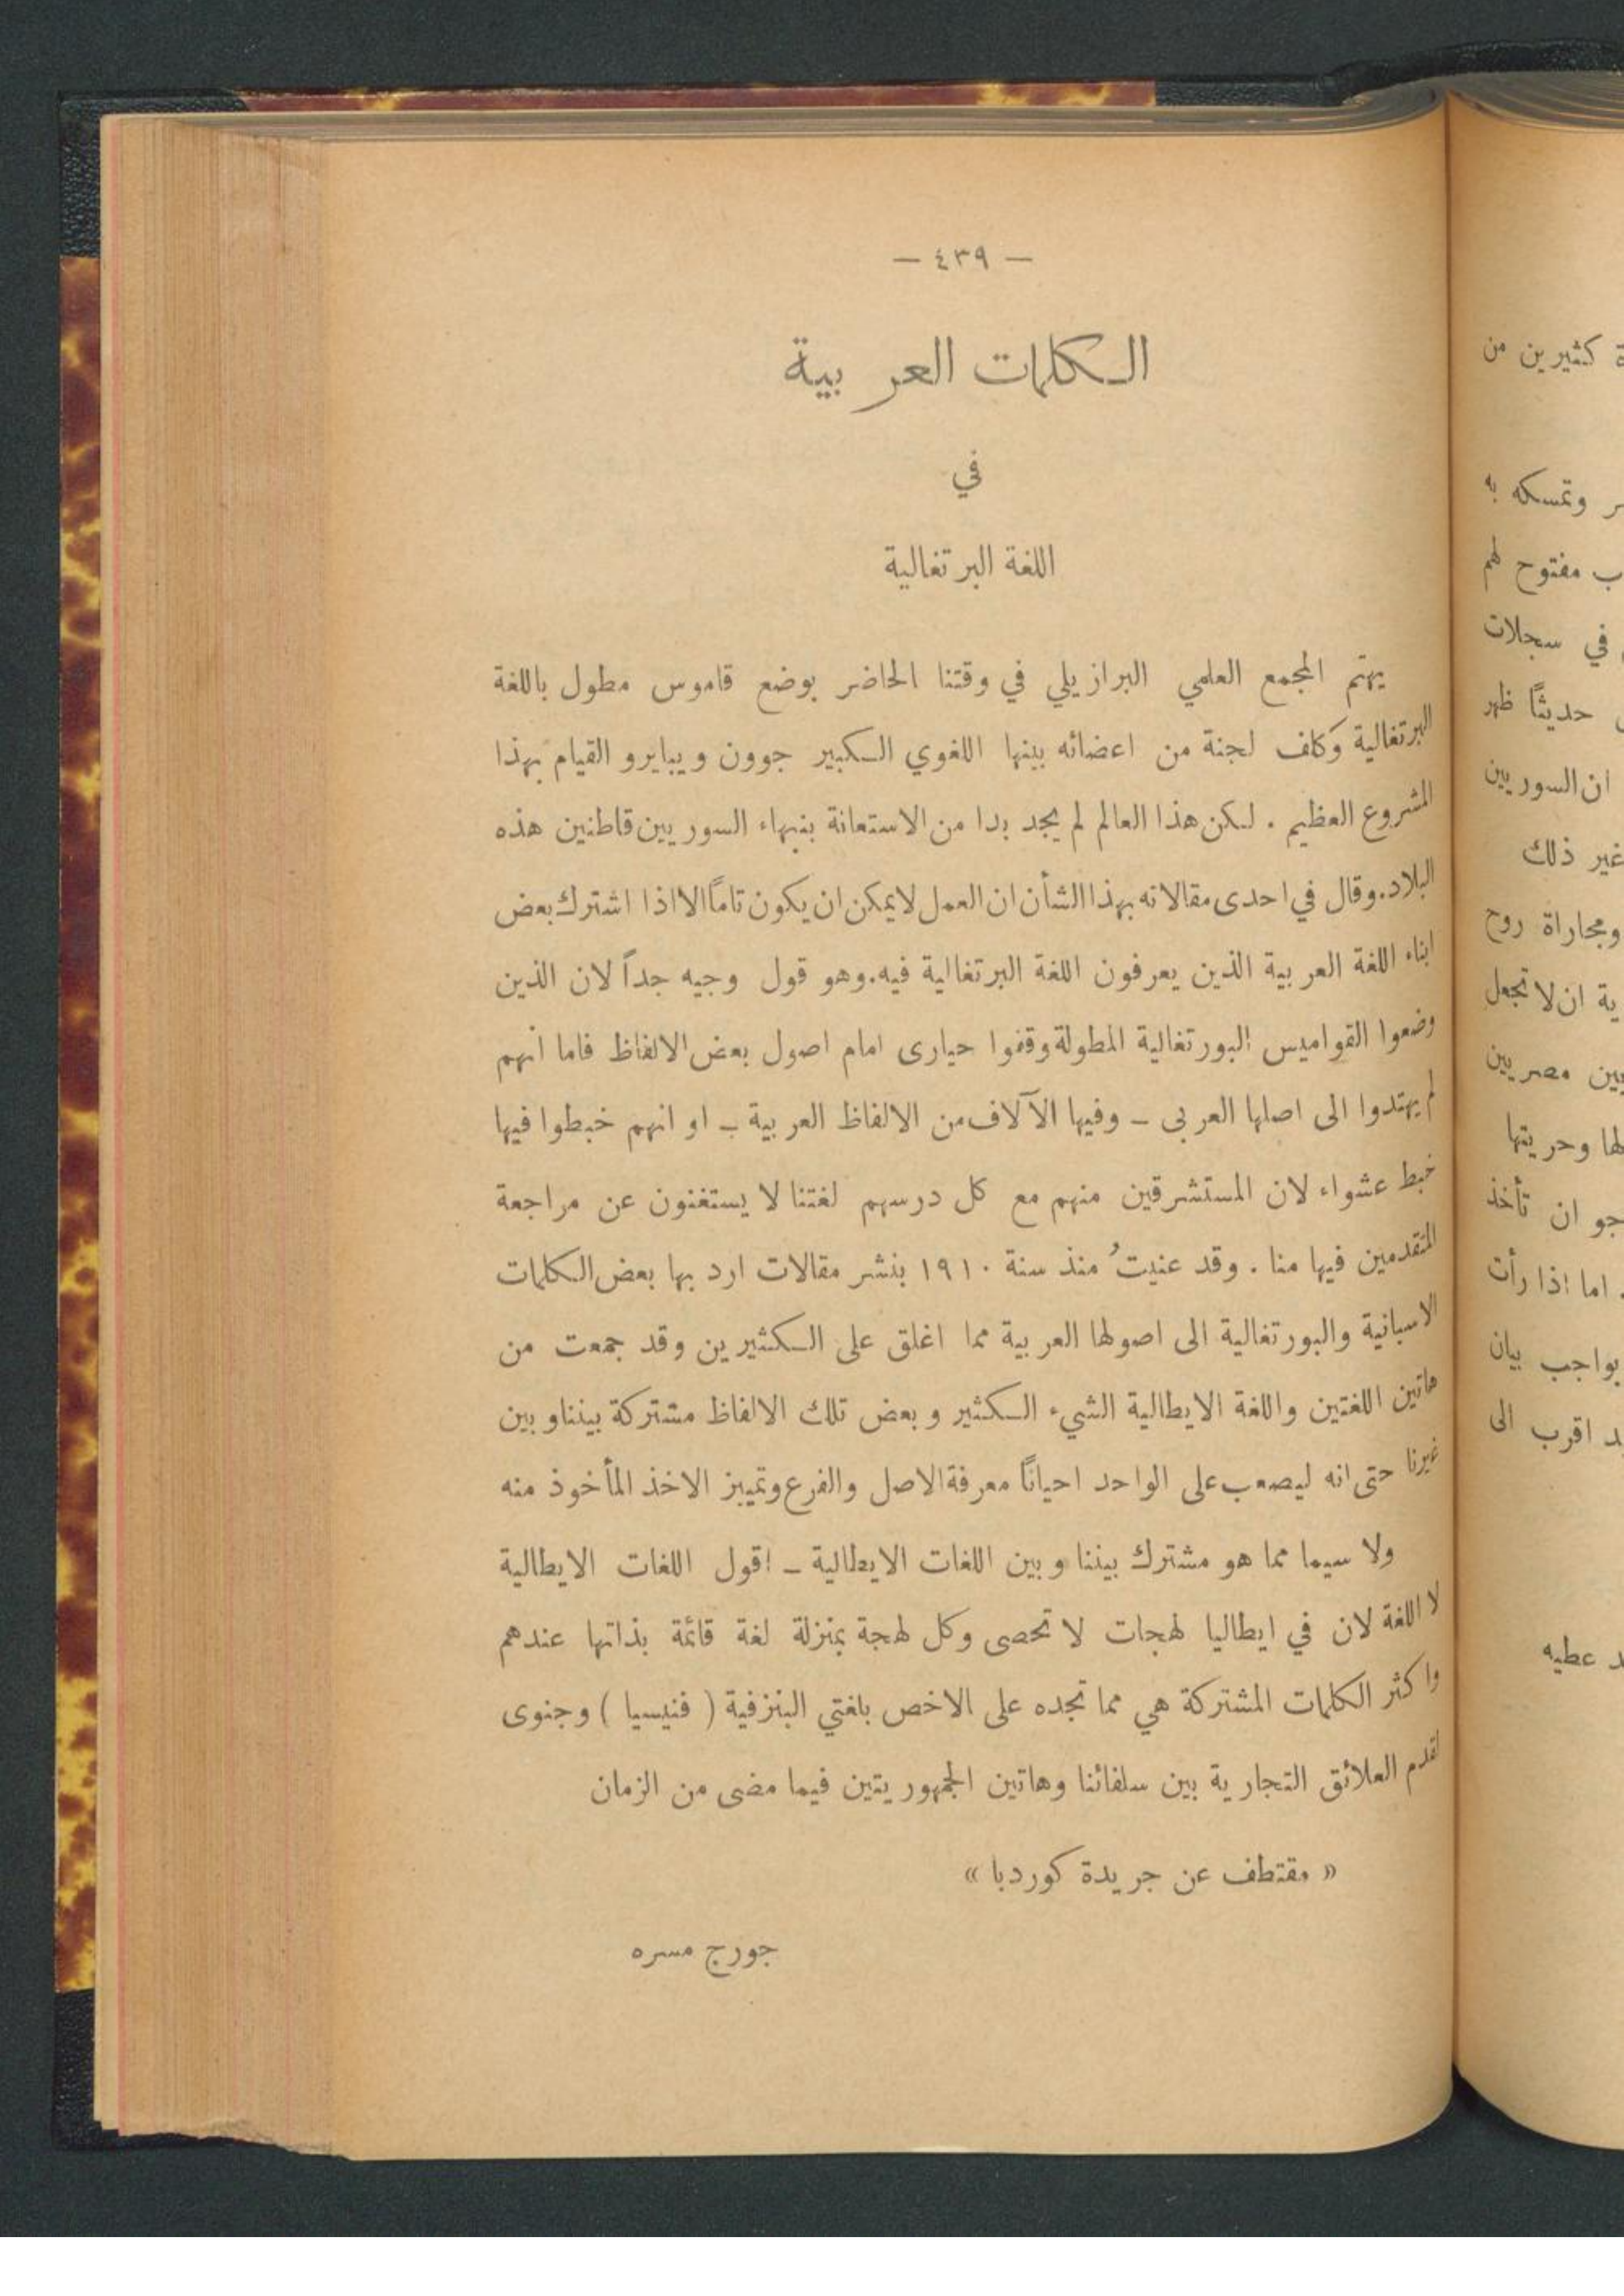 — ٤٣٩ —
الكلمات العربية
في
اللغة البرتغالية
يهتم المجمع العلمي البرازيلي في وقتنا الحاضر بوضع قاموس مطول باللغة
البرتغالية وكلف لجنة من اعضائه بينها اللغوي الكبير جوون ويبايرو القيام بهذا
المشروع العظيم . لكن هذا العالم لم يجد بدا من الاستعانة بنبهاء السوريين قاطنين هذه
البلاد. وقال في احدى مقالاته بهذا الشأن ان العمل لا يمكن ان يكون تاماً الا اذا اشترك بعض
ابناء اللغة العربية الذين يعرفون اللغة البرتغالية فيه. وهو قول وجيه جداً لان الذين
وضعوا القواميس البورتغالية المطولة وقفوا حيارى امام اصول بعض الالفاظ فاما انهم
لم يهتدوا الى اصلها العربى – وفيها الآلاف من الالفاظ العربية – او انهم خبطوا فيها
خبط عشواء لان المستشرقين منهم مع كل درسهم لغتنا لا يستغنون عن مراجعة
المتقدمين فيها منا . وقد عنيتُ منذ سنة ١٩١٠ بنشر مقالات ارد بها بعض الكلمات
الاسبانية والبورتغالية الى اصولها العربية مما اغلق على الكثيرين وقد جمعت من
هاتين اللغتين واللغة الايطالية الشيء الكثير وبعض تلك الالفاظ مشتركة بيننا وبين
غيرنا حتى انه ليصعب على الواحد احياناً معرفة الاصل والفرع وتمييز الاخذ المأخوذ منه
ولا سيما مما هو مشترك بيننا وبين اللغات الايطالية – اقول اللغات الايطالية
لا اللغة لان في ايطاليا لهجات لا تحصى وكل لهجة بمنزلة لغة قائمة بذاتها عندهم
واكثر الكلمات المشتركة هي مما تجده على الاخص بلغتي البنزفية ( فنيسيا ) وجنوى
لقدم العلائق التجارية بين سلفائنا وهاتين الجمهوريتين فيما مضى من الزمان
« مقتطف عن جريدة كوردبا »
جورج مسره
كثيرين من
وتمسكه به
مفتوح لهم
في سجلات
حديثاً ظهر
ان السوريين
غير ذلك
ومجاراة روح
ان لا تجعل
مصريين
وحريتها
ان تأخذ
. اما اذا رأت
بواجب بيان
اقرب الى
عطيه